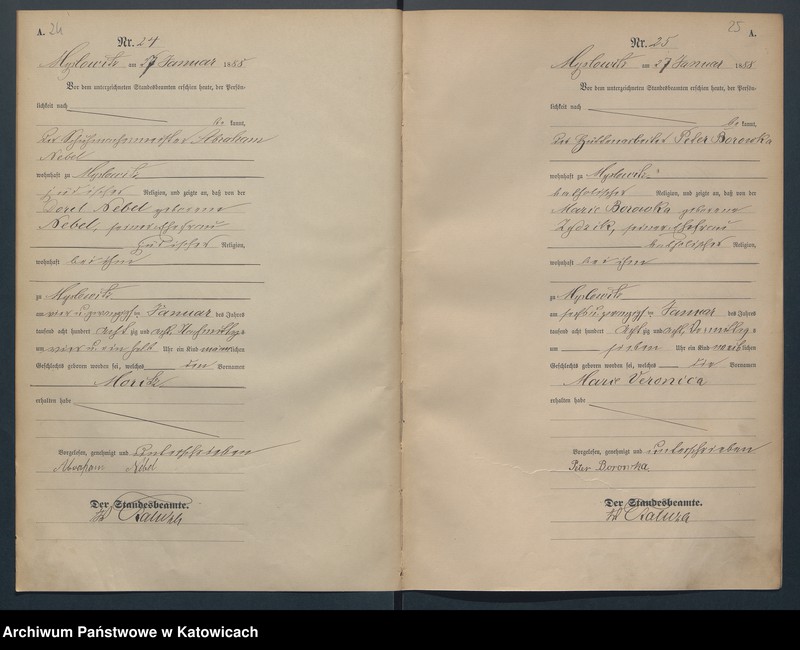 A. 24
Nr. 24
Myslowitz am 27 Januar 1888
Vor dem unterzeichneten Standesbeamten erschien heute, der Persön-
lichkeit nach
be kannt,
der Schuhmachermeister Abraham
Nebel
wohnhaft zu Myslowitz
jüdischer Religion, und zeigte an, daß von der
Dorel Nebel geborene
Nebel, seiner Ehefrau
jüdischer Religion,
wohnhaft bei ihm
zu Myslowitz
am vier u. zwanzigsten Januar des Jahres
tausend acht hundert achtzig und acht Nachmittags
um vier u. ein halb Uhr ein Kind männlichen
Geschlechts geboren worden sei, welches den Vornamen
Moritz
erhalten habe
Vorgelesen, genehmigt und unterschrieben
Abraham Nebel
Der Standesbeamte.
Kaluza
25 A.
Nr. 25
Myslowitz am 27 Januar 1888
Vor dem unterzeichneten Standesbeamten erschien heute, der Persön-
lichkeit nach
be kannt,
der Hüttenarbeiter Peter Borowka
wohnhaft zu Myslowitz
katholischer Religion, und zeigte an, daß von der
Marie Borowka geborene
seiner Ehefrau
katholischer Religion,
wohnhaft bei ihm
zu Myslowitz
am sechs u. zwanzigsten Januar des Jahres
tausend acht hundert achtzig und acht Vormittags
um sieben Uhr ein Kind weiblichen
Geschlechts geboren worden sei, welches die Vornamen
Marie Veronica
erhalten habe
Vorgelesen, genehmigt und unterschrieben
Peter Borowka
Der Standesbeamte.
Kaluza
Archiwum Państwowe w Katowicach